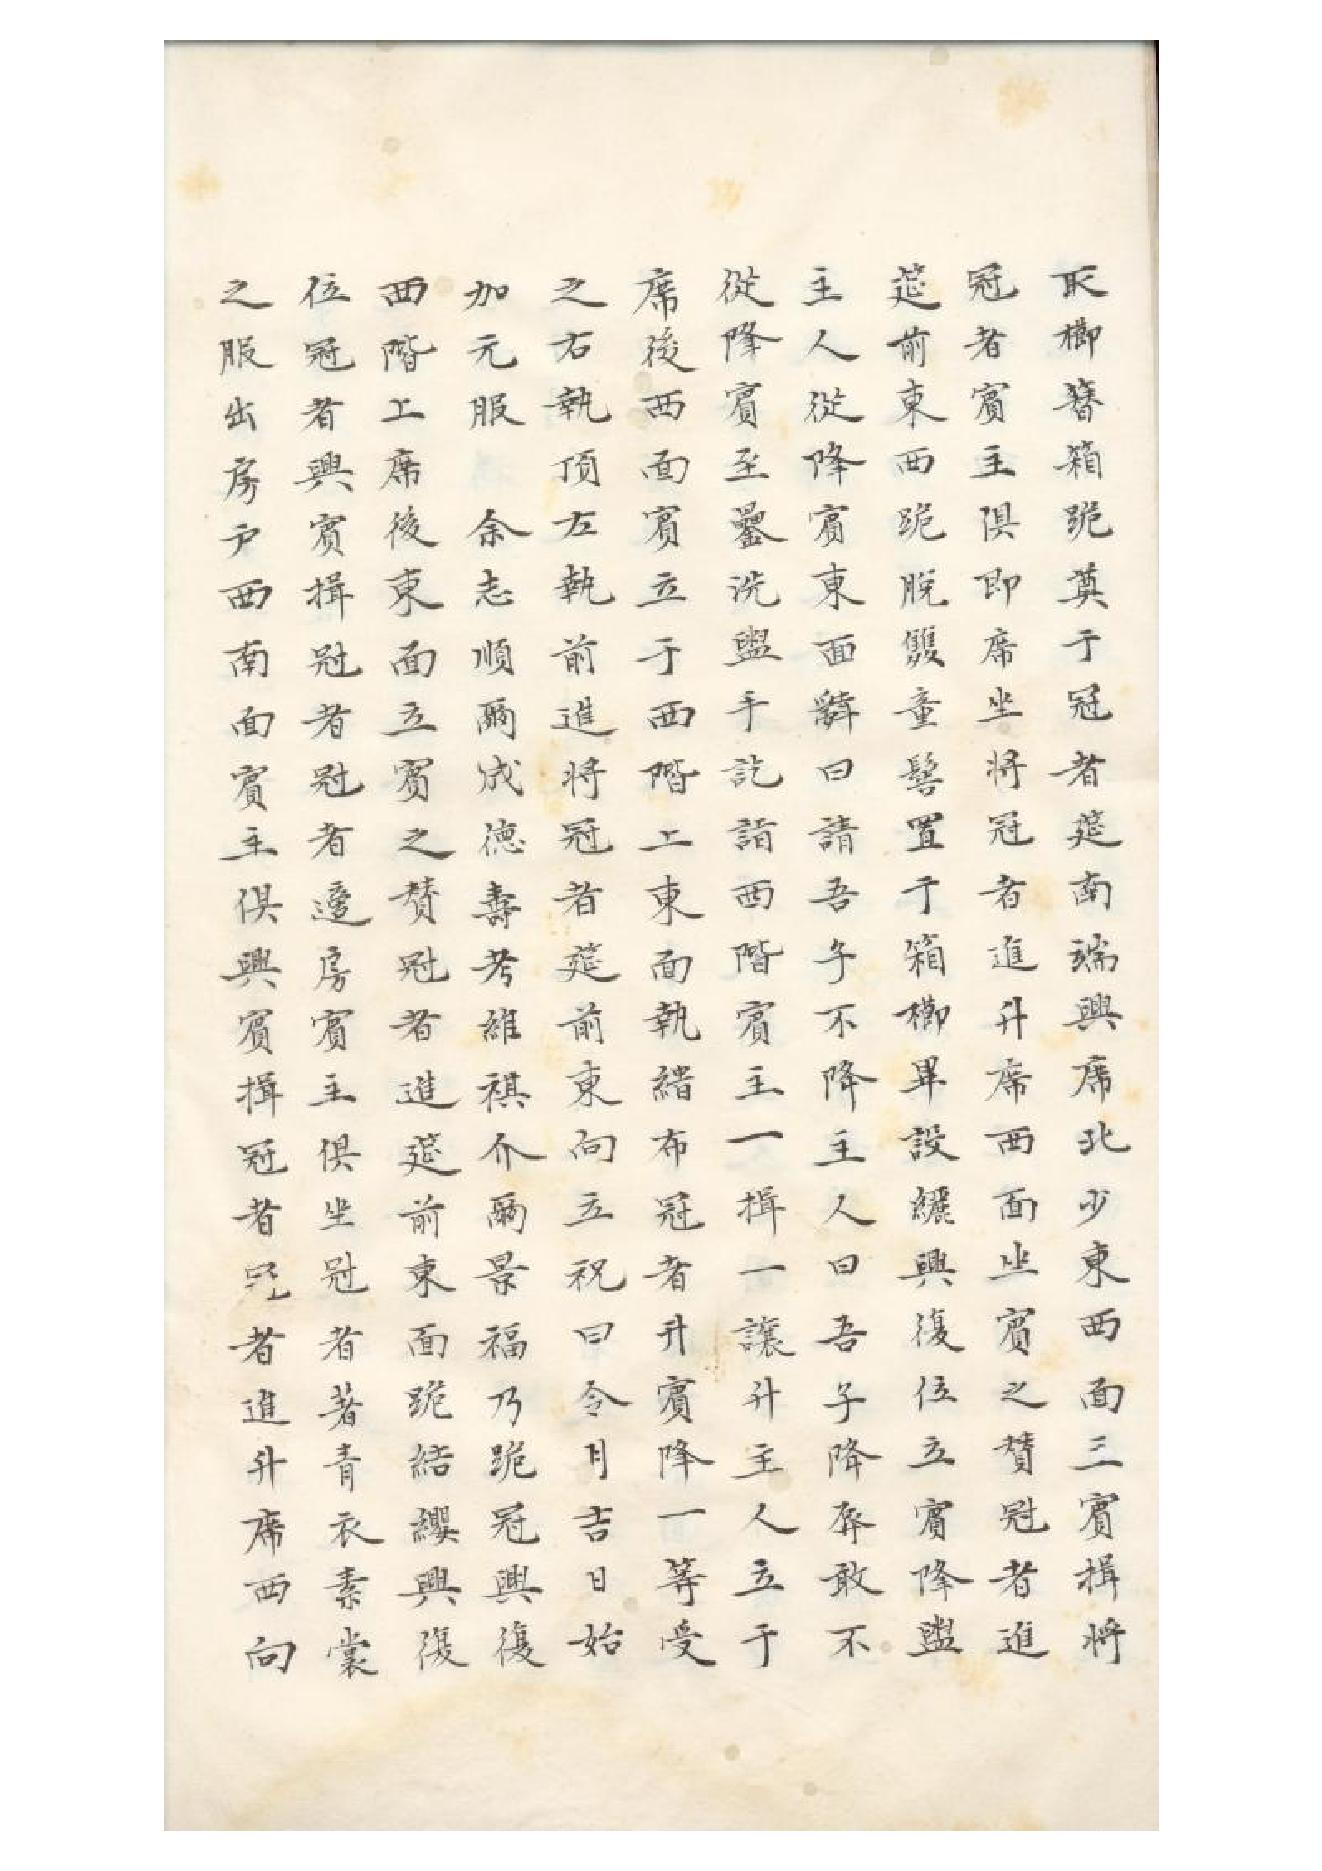 取櫛簪箱跪奠于冠者筵南端興席北少東西面三賓揖將
冠者賓主俱即席坐將冠者進升席西面坐賓之賛冠者進
筵前東西跪脫雙童髻置于箱櫛畢設纚興復位立賓降盥
主人從降賓東面辭曰請吾子不降主人曰吾子降辱敢不
從降賓至罍洗盥手訖詣西階賓主一揖一讓升主人立于
席後西面賓立于西階上東面執緇布冠者升賓降一等受
之右執頂左執前進將冠者筵前東向立祝曰令月吉日始
加元服 余志順爾成德壽考維祺介爾景福乃跪冠興復
西階上席後東面立賓之賛冠者進筵前東面跪結纓興復
位冠者興賓揖冠者冠者適房賓主俱坐冠者著青衣素裳
之服出房戶西南面賓主俱興賓揖冠者冠者進升席西向